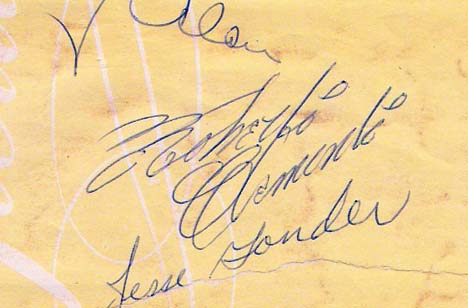 Roberto
Clemente
Jesse Gonder